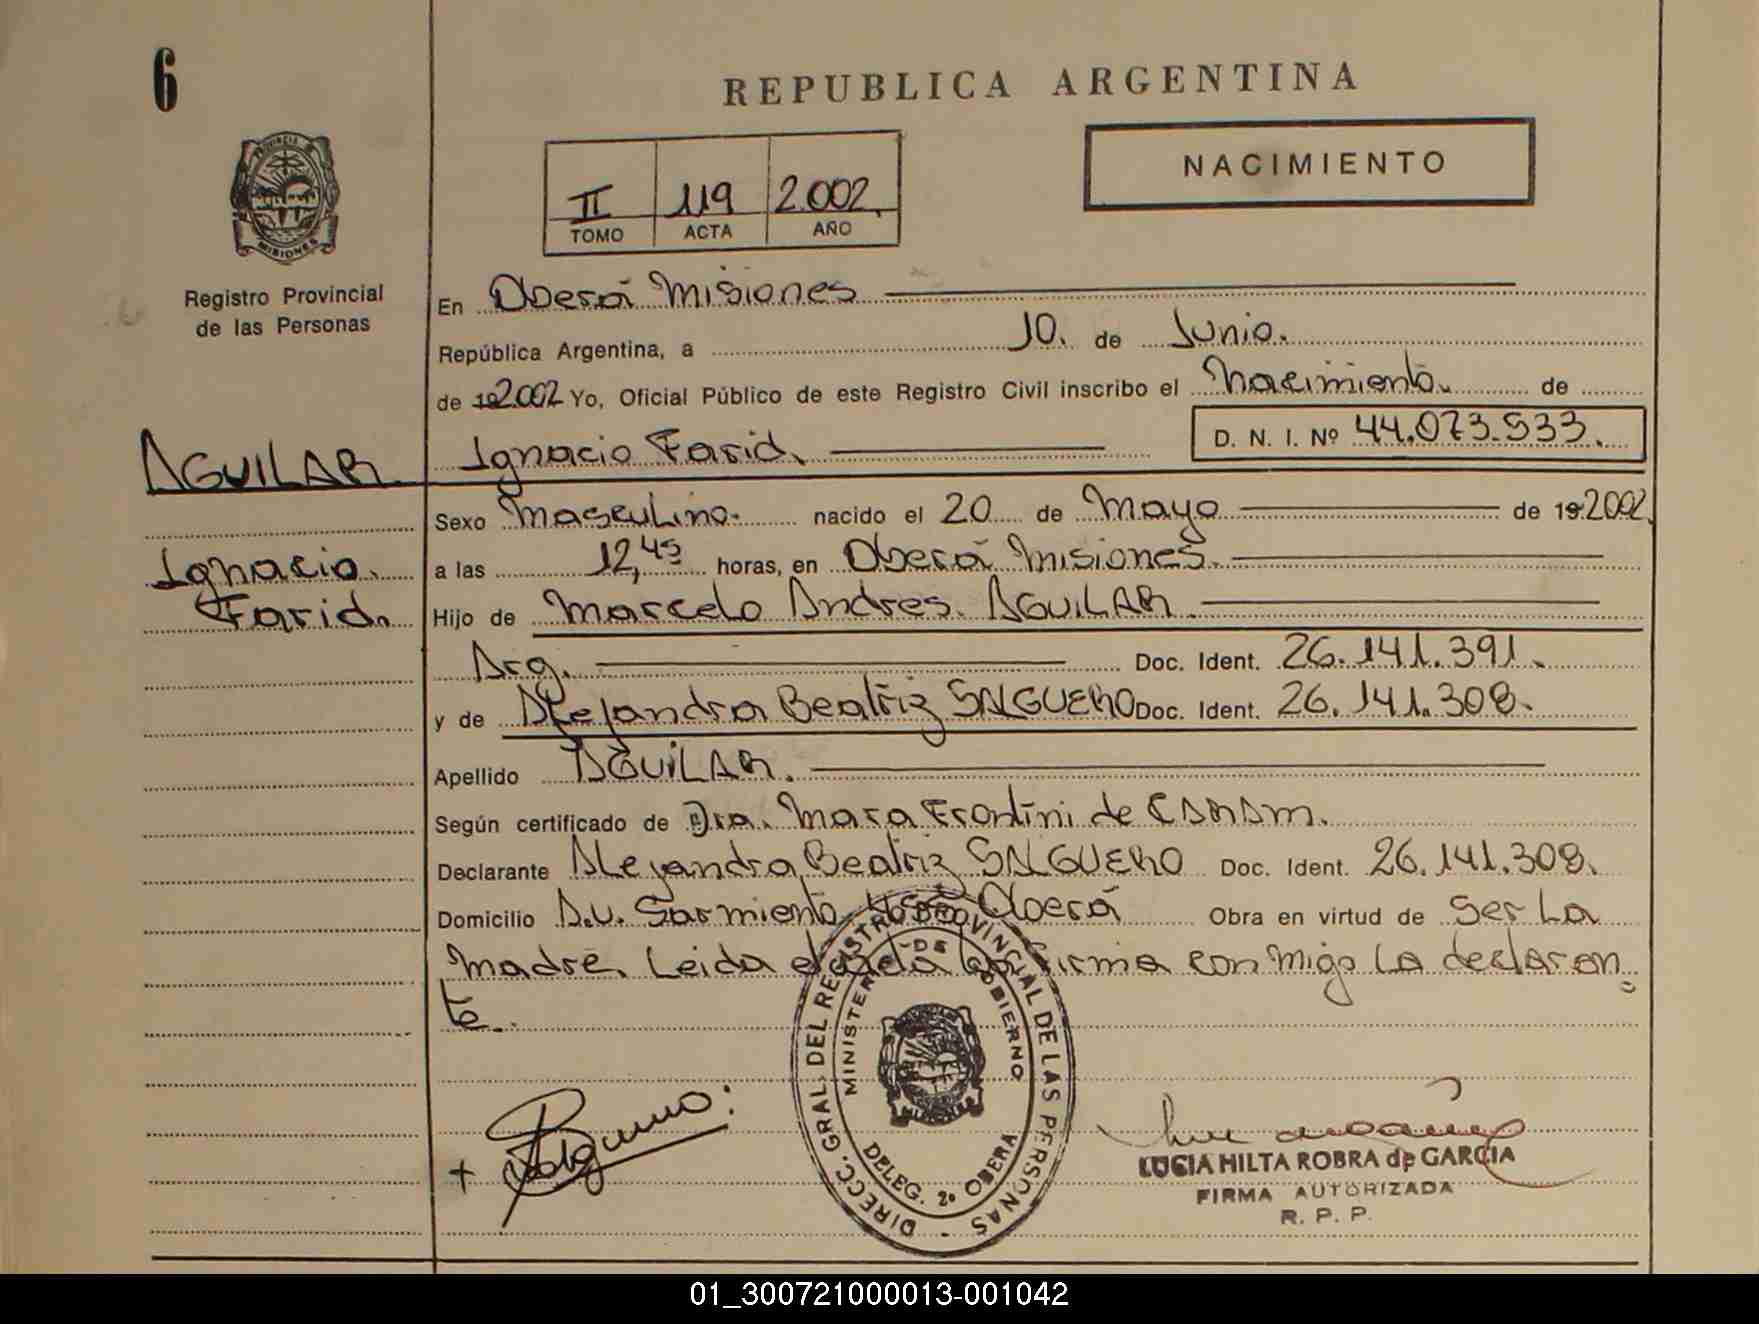 6
REPUBLICA ARGENTINA
PROVINCIA DE MISIONES
Registro Provincial
de las Personas
II 119 2.002.
TOMO ACTA AÑO
NACIMIENTO
En Oberá Misiones
República Argentina, a 10. de Junio.
de 192.002 Yo, Oficial Público de este Registro Civil inscribo el Nacimiento. de
AGUILAR Ignacio Farid. D. N. I. Nº 44.073.533.
Sexo Masculino. nacido el 20 de Mayo de 192002.
Ignacio. a las 12,45 horas, en Oberá Misiones.
Farid. Hijo de Marcelo Andres. AGUILAR.
Arg. Doc. Ident. 26.141.391.
y de Alejandra Beatriz SALGUERO Doc. Ident. 26.141.308.
Apellido AGUILAR.
Según certificado de Dra. Mara Frontini de
Declarante Alejandra Beatriz SALGUERO Doc. Ident. 26.141.308.
Domicilio Sarmiento Oberá Obra en virtud de Ser La
Madre. Leida el acta La firma con migo La declaran
te.
DIRECC. GRAL. DEL REGISTRO PROVINCIAL DE LAS PERSONAS
MINISTERIO DE GOBIERNO
DELEG. 2º OBERA
LUCIA HILTA ROBRA de GARCIA
FIRMA AUTORIZADA
R. P. P.
01_300721000013-001042